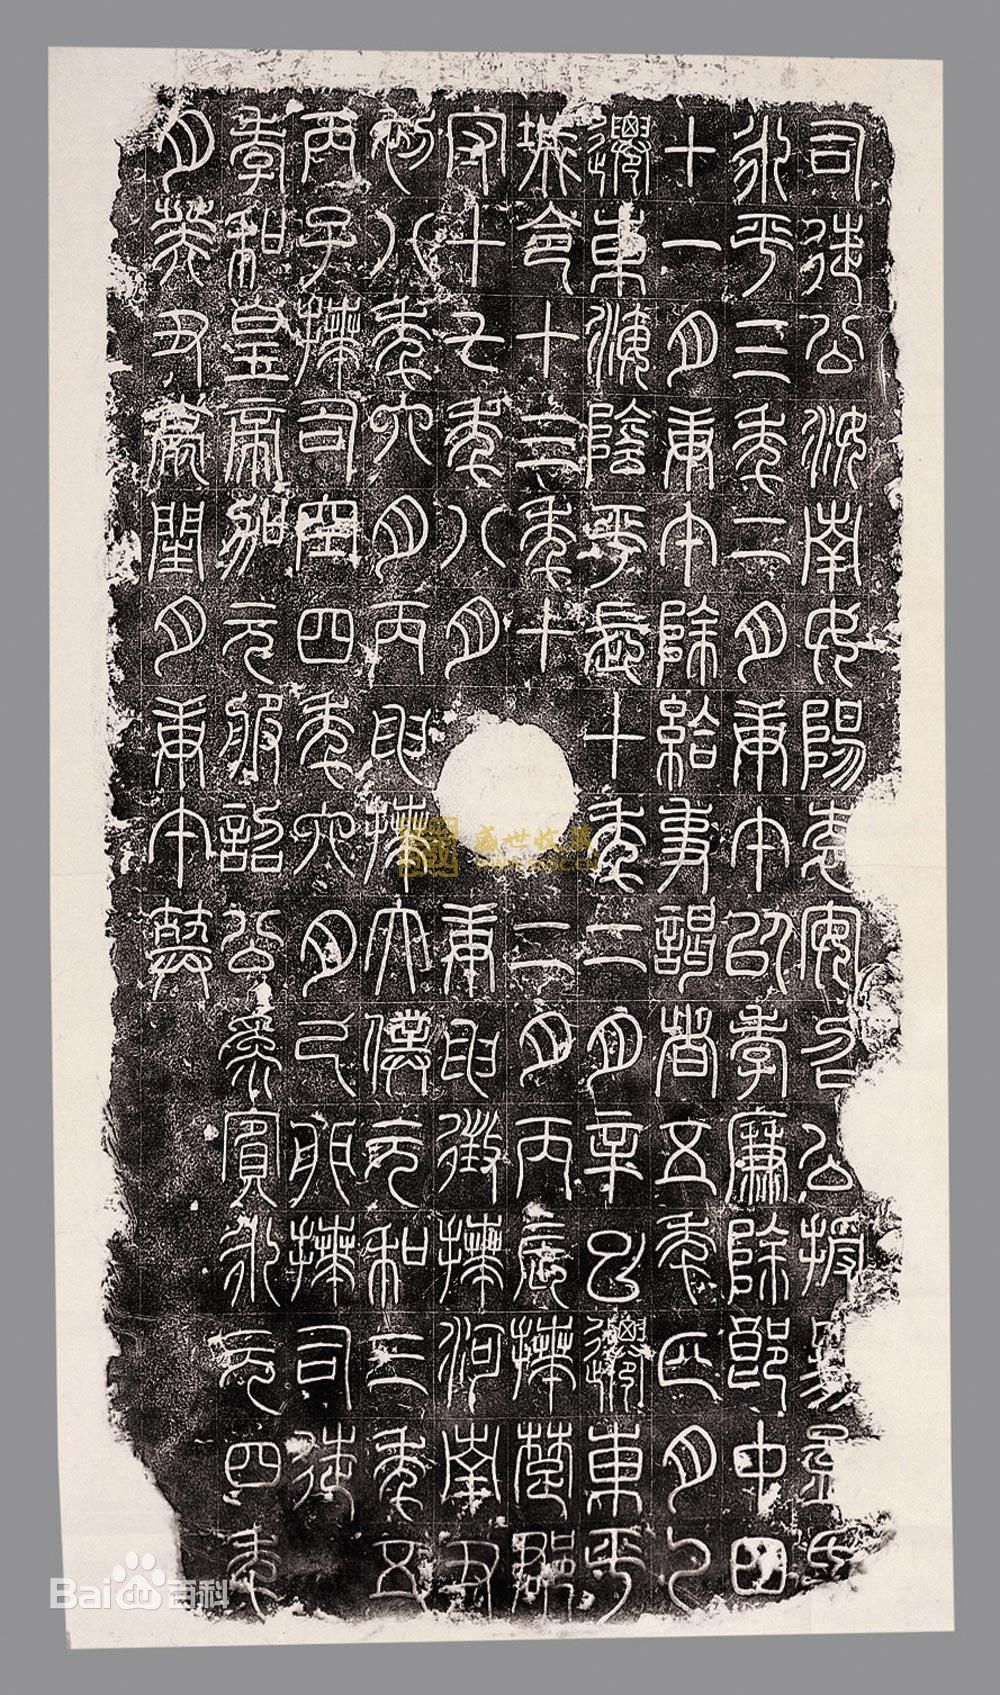 司徒公汝南女陽袁安召公授易孟氏
永平三年二月庚午以孝廉除郎中四
十一月庚午除給事謁者五年正月乙
遷東海陰平長十年二月辛巳遷東平
城令十三年十二月丙辰拜楚郡
守十七年八月庚申徵拜河南尹
初八年六月丙申拜太僕元和三年五
丙子拜司空四年六月己卯拜司徒
孝和皇帝加元服詔公為賓永元四年
月癸丑薨閏月庚午葬
盛世收藏
Bai百科